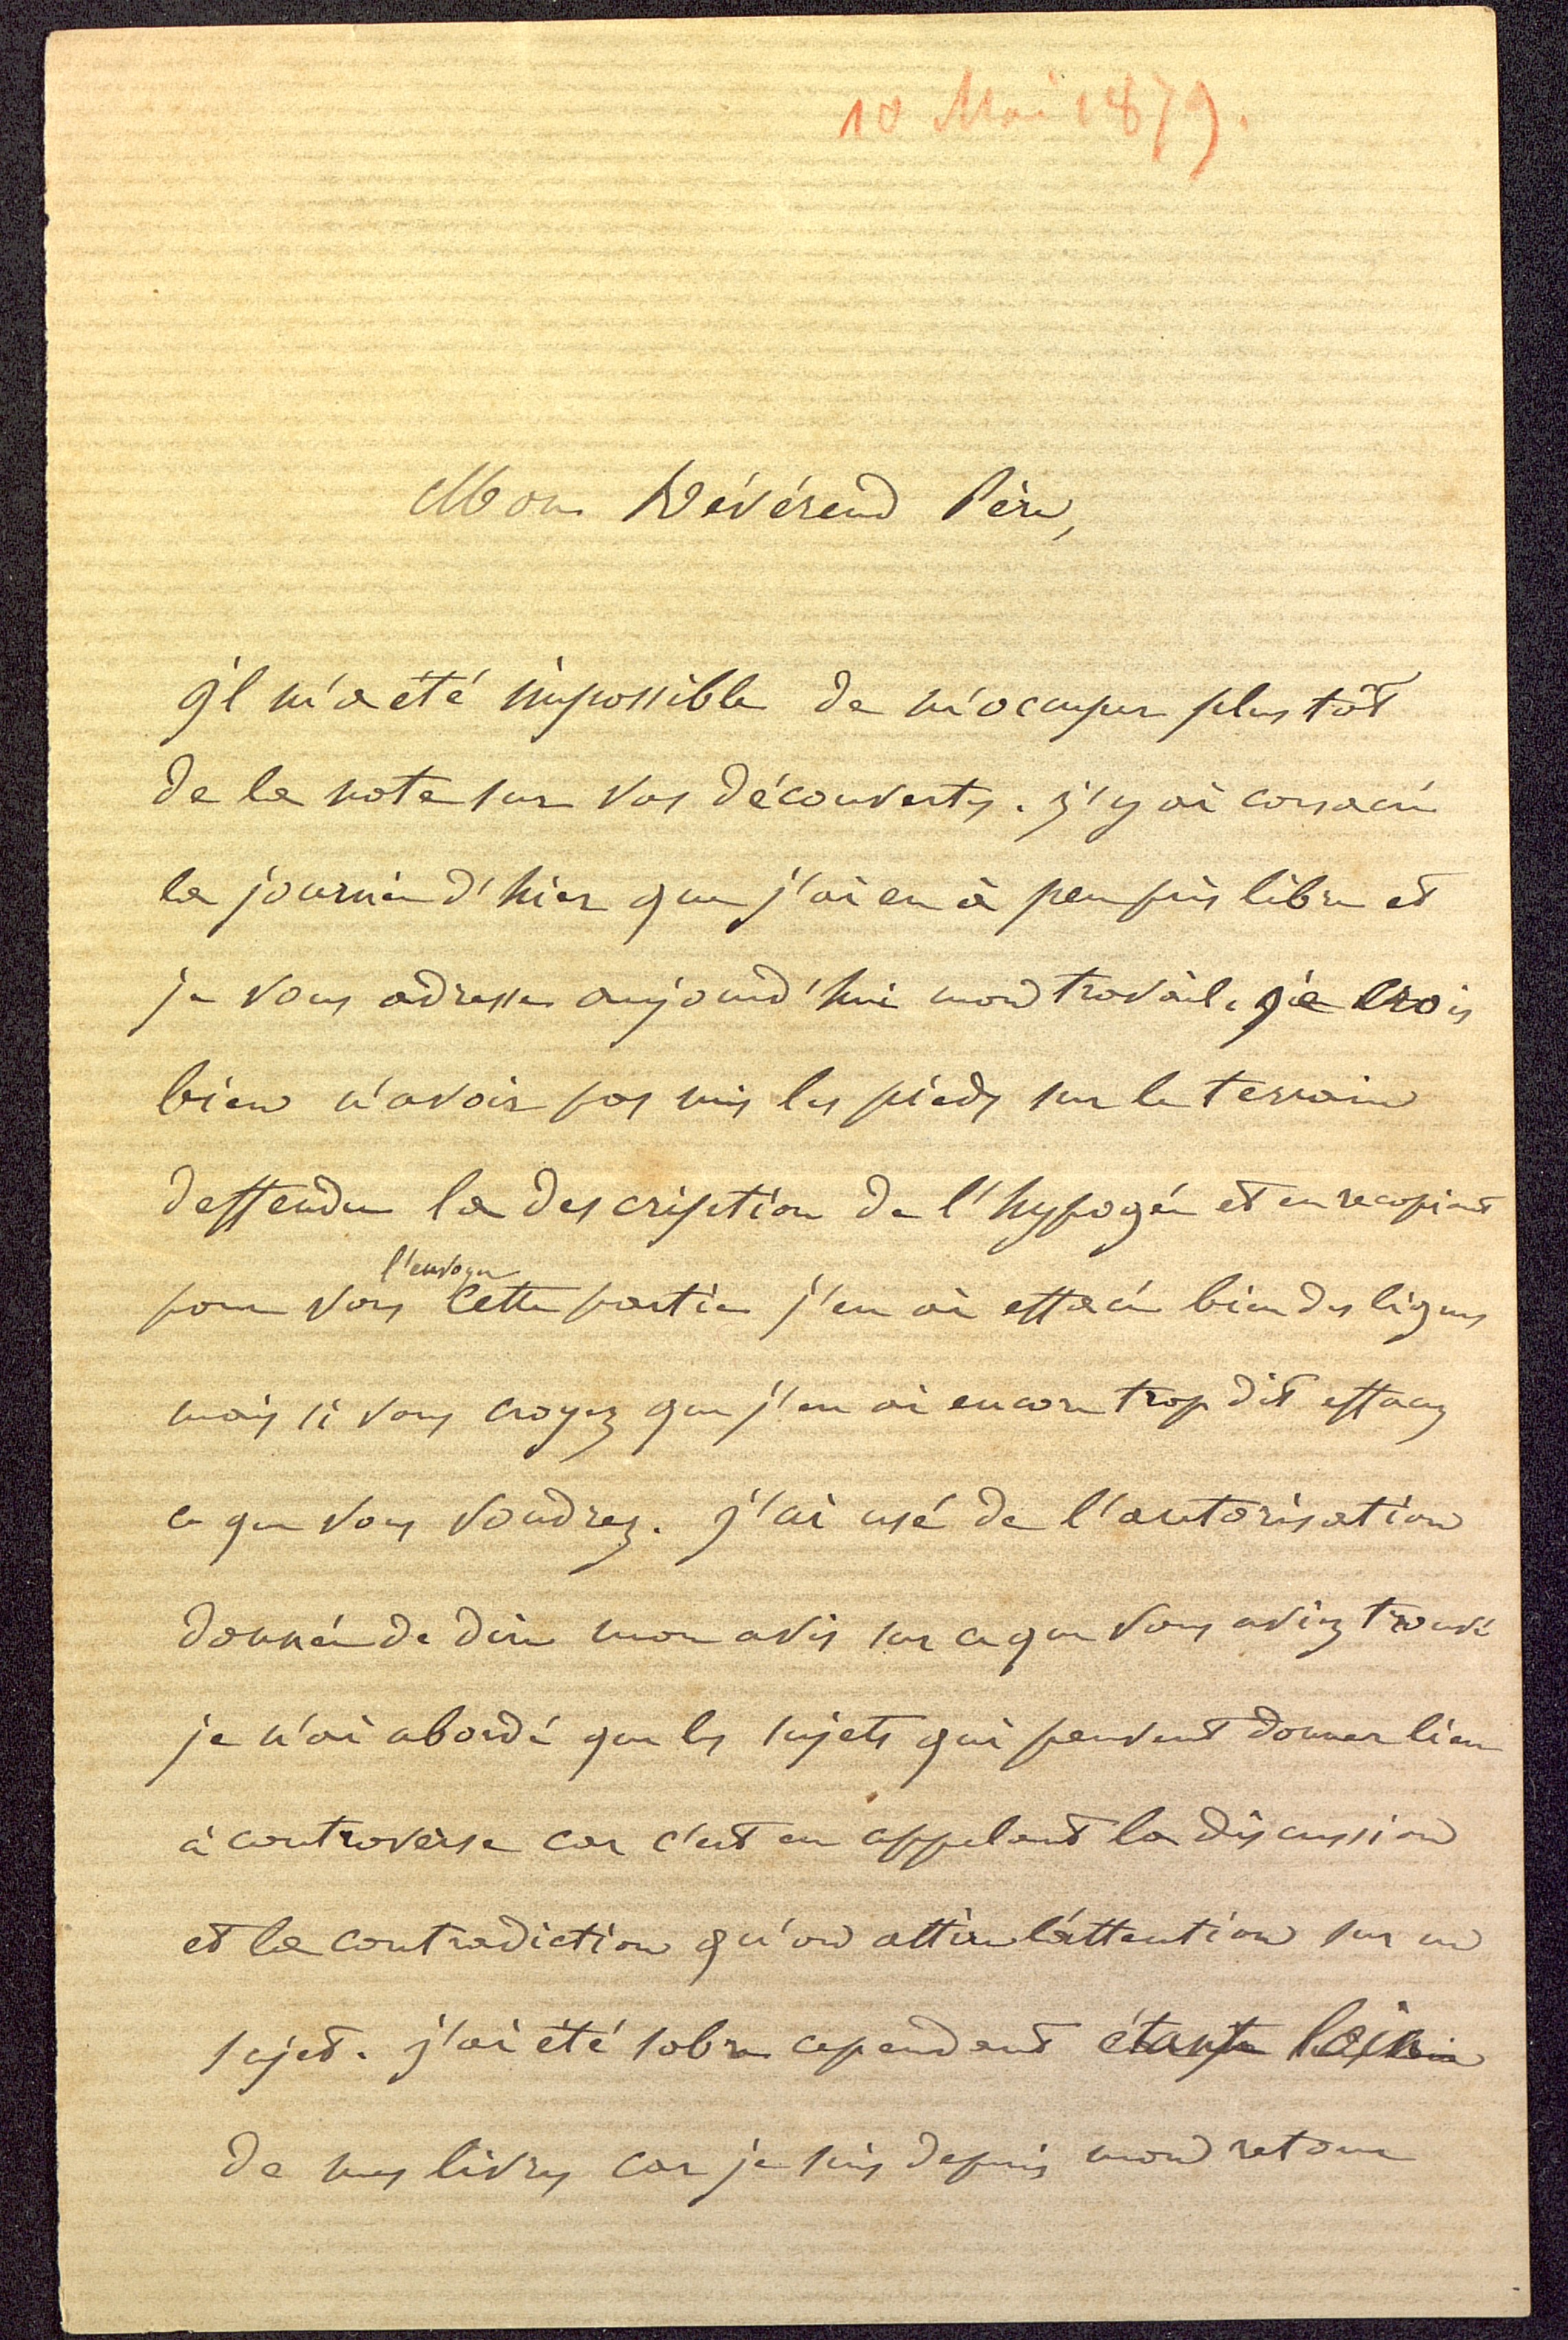 10 Mai 1879.
Mon Révérend Père,
Il m'a été impossible de m'occuper plus tôt
de la note sur vos découvertes. j'y ai consacré
la journée d'hier que j'ai eu à peu près libre et
je vous adresse aujourd'hui mon travail. je crois
bien n'avoir pas mis les pieds sur le terrain
deffendu la description de l'hypogée et en recopiant
l'envoyer
pour vous cette partie j'en ai effacé bien des lignes
mais si vous croyez que j'en ai encore trop dit effacez
ce que vous voudrez. j'ai usé de l'autorisation
donnée de dire mon avis sur ce que vous aviez trouvé
je n'ai abordé que les sujets qui peuvent donner lieu
à controverse car c'est en appelant la discussion
et la contradiction qu'on attire l'attention sur un
sujet. j'ai été sobre cependant étant loin
de mes livres car je suis depuis mon retour